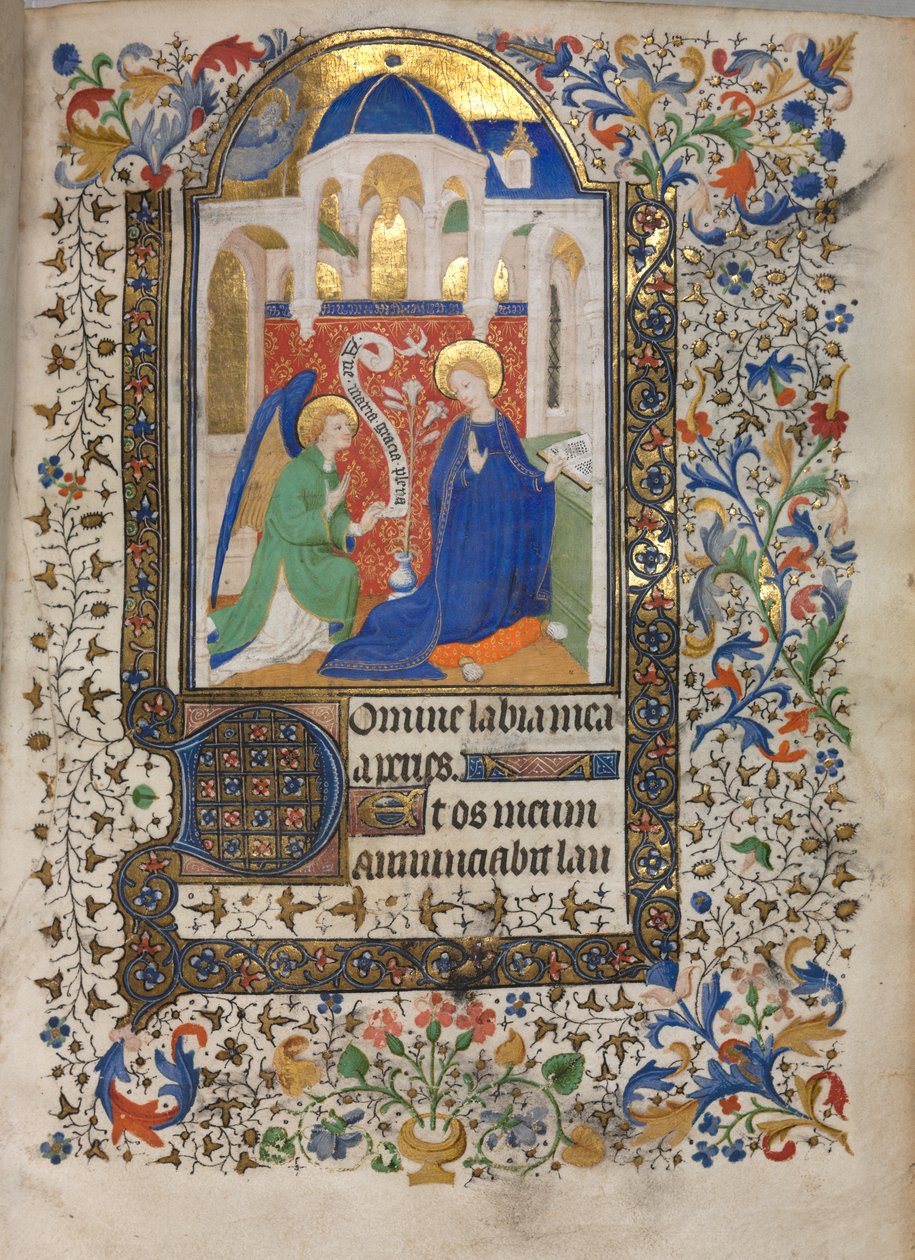 Ave. maria. gracia. plena
Domine labia mea
aperies.
Et os meum
Annunciabit lau